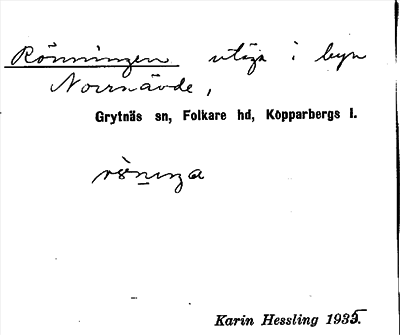 Rönningen utäga i byn
Norrnävde,
Grytnäs sn, Folkare hd, Kopparbergs l.
Karin Hessling 1935.